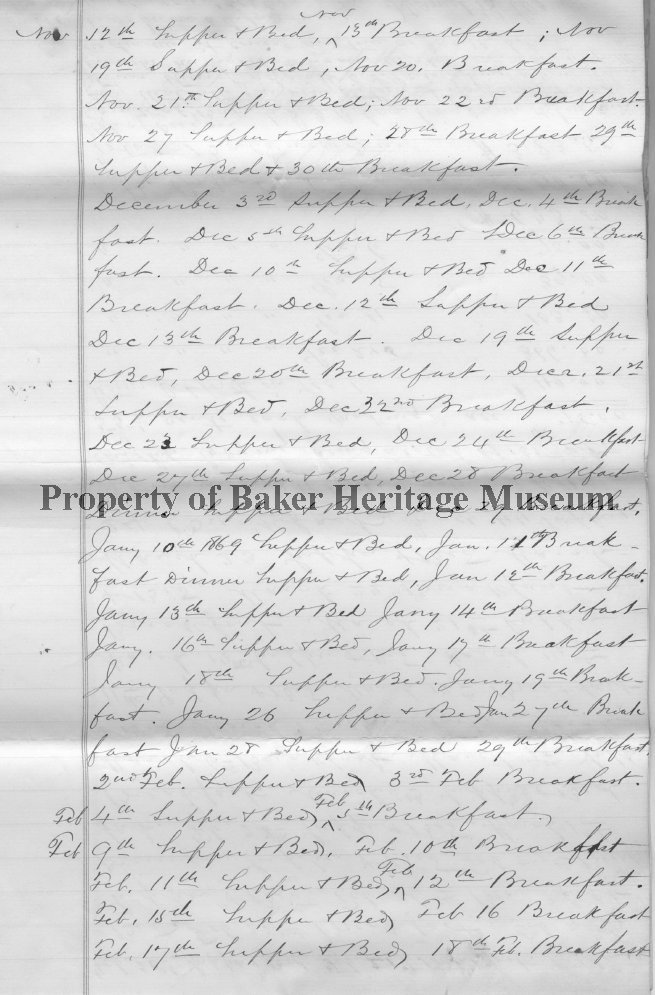 Nov 12th Supper & Bed, Nov 13th Breakfast; Nov
19th Supper & Bed, Nov 20. Breakfast.
Nov. 21th Supper & Bed; Nov 22nd Breakfast
Nov 27 Supper & Bed; 28th Breakfast 29th
Supper & Bed & 30th Breakfast.
December 3rd Supper & Bed, Dec. 4th Break
fast. Dec 5th Supper & Bed Dec 6th Break
fast. Dec 10th Supper & Bed Dec 11th
Breakfast. Dec. 12th Supper & Bed
Dec 13th Breakfast. Dec 19th Supper
& Bed, Dec 20th Breakfast, 21st
Supper & Bed, Dec 22nd Breakfast.
Dec 23 Supper & Bed, Dec 24th Breakfast
Dec 27th Supper & Bed, Dec 28 Breakfast
Property of Baker Heritage Museum
Dinner Supper & Bed 29 Breakfast.
Jany 10th 1869 Supper & Bed, Jan. 11th Break-
fast Dinner Supper & Bed, Jan 12th Breakfast.
Jany 13th Supper & Bed Jany 14th Breakfast
Jany. 16th Supper & Bed, Jany 17th Breakfast
Jany 18th Supper & Bed. Jany 19th Break-
fast. Jany 26 Supper & Bed Jan 27th Break
fast Jan 28 Supper & Bed 29th Breakfast.
2nd Feb. Supper & Bed, 3rd Feb Breakfast.
Feb 4th Supper & Bed, Feb 5th Breakfast.
Feb 9th Supper & Bed. Feb. 10th Breakfast
Feb. 11th Supper & Bed, Feb 12th Breakfast.
Feb. 15th Supper & Bed, Feb 16 Breakfast
Feb. 17th Supper & Bed, 18th Feb. Breakfast